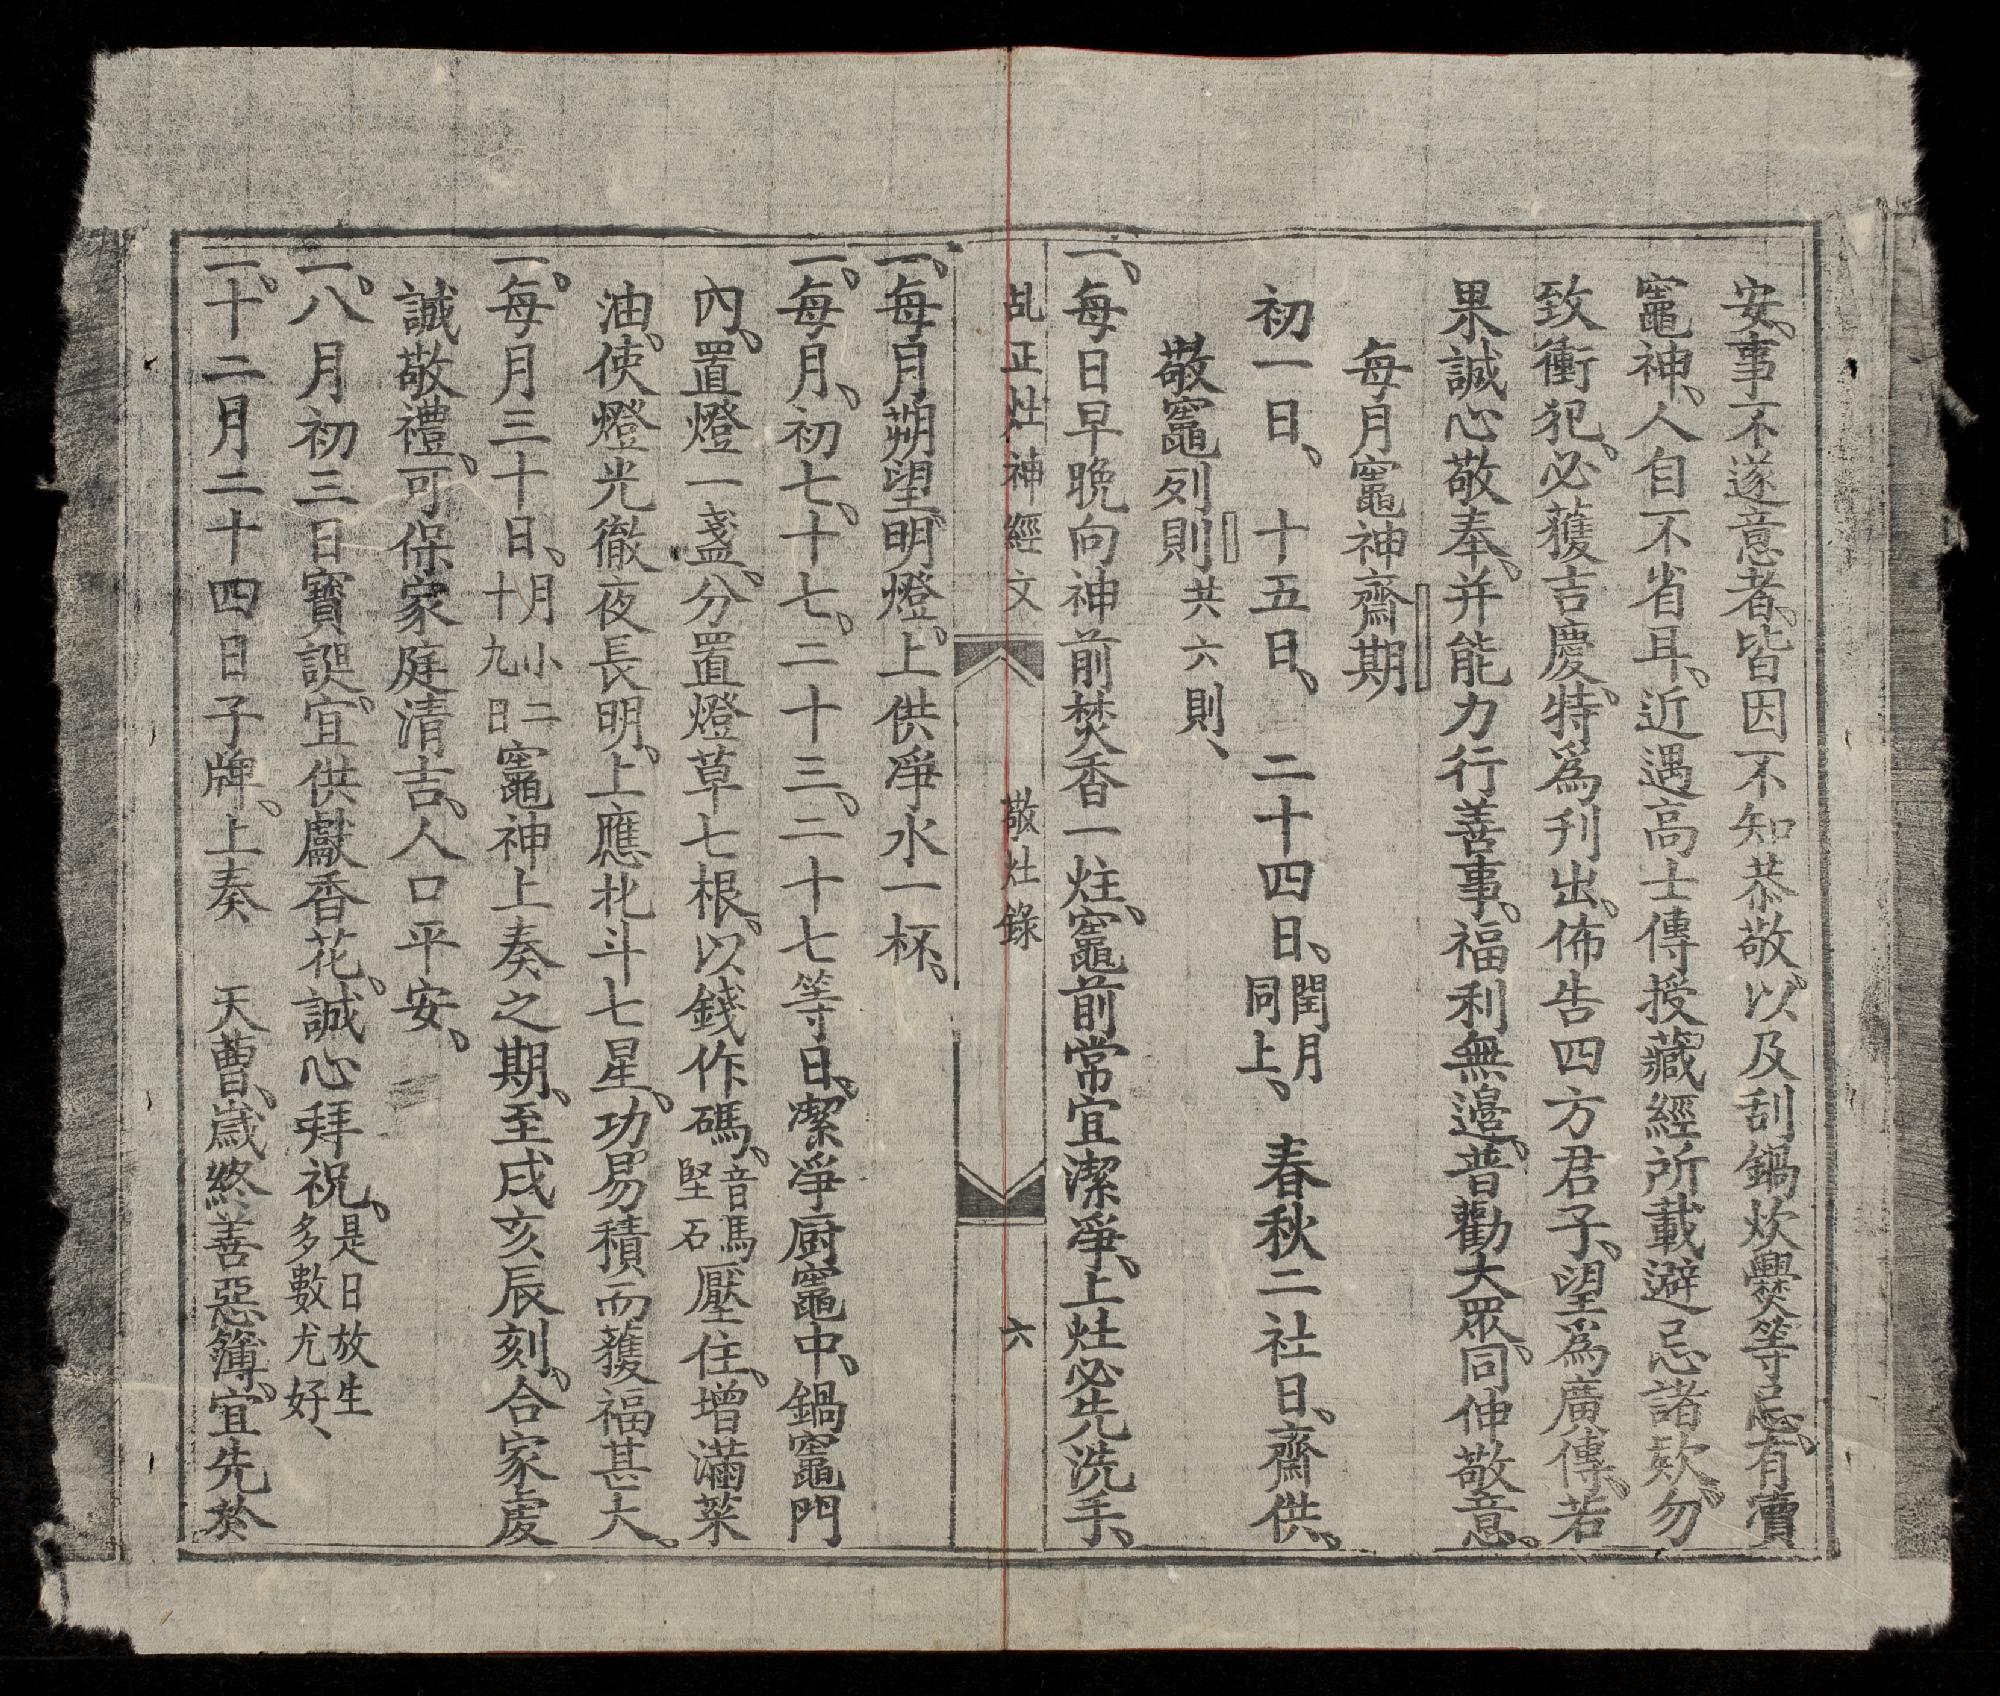 安、事不遂意者、皆因不知恭敬、以及刮鍋炊爨等忌、有瀆
竈神、人自不省耳、近遇高士傳授藏經所載避忌諸欵、勿
致衝犯、必獲吉慶、特爲刋出、佈告四方君子、望爲廣傳、若
果誠心敬奉、并能力行善事、福利無邊、普勸大眾、同伸敬意、
每月竈神齋期
初一日、 十五日、 二十四日、閏月同上、 春秋二社日、齋供、
敬竈列則 共六則、
一、每日早晚向神前焚香一炷、竈前常宜潔凈、上灶必先洗手、
乩正灶神經文 敬灶錄 六
一、每月朔望明燈、上供凈水一杯、
一、每月、初七、十七、二十三、二十七等日、潔凈廚竈中、鍋竈門
內、置燈一盞、分置燈草七根、以錢作碼、音馬堅石壓住、增滿菜
油、使燈光徹夜長明、上應北斗七星、功易積而獲福甚大、
一、每月三十日、月小二十九日竈神上奏之期、至戌亥辰刻、合家虔
誠敬禮、可保家庭清吉、人口平安、
一、八月初三日寶誕、宜供獻香花、誠心拜祝、是日放生多數尤好、
一、十二月二十四日子牌、上奏 天曹、歲終善惡簿、宜先於